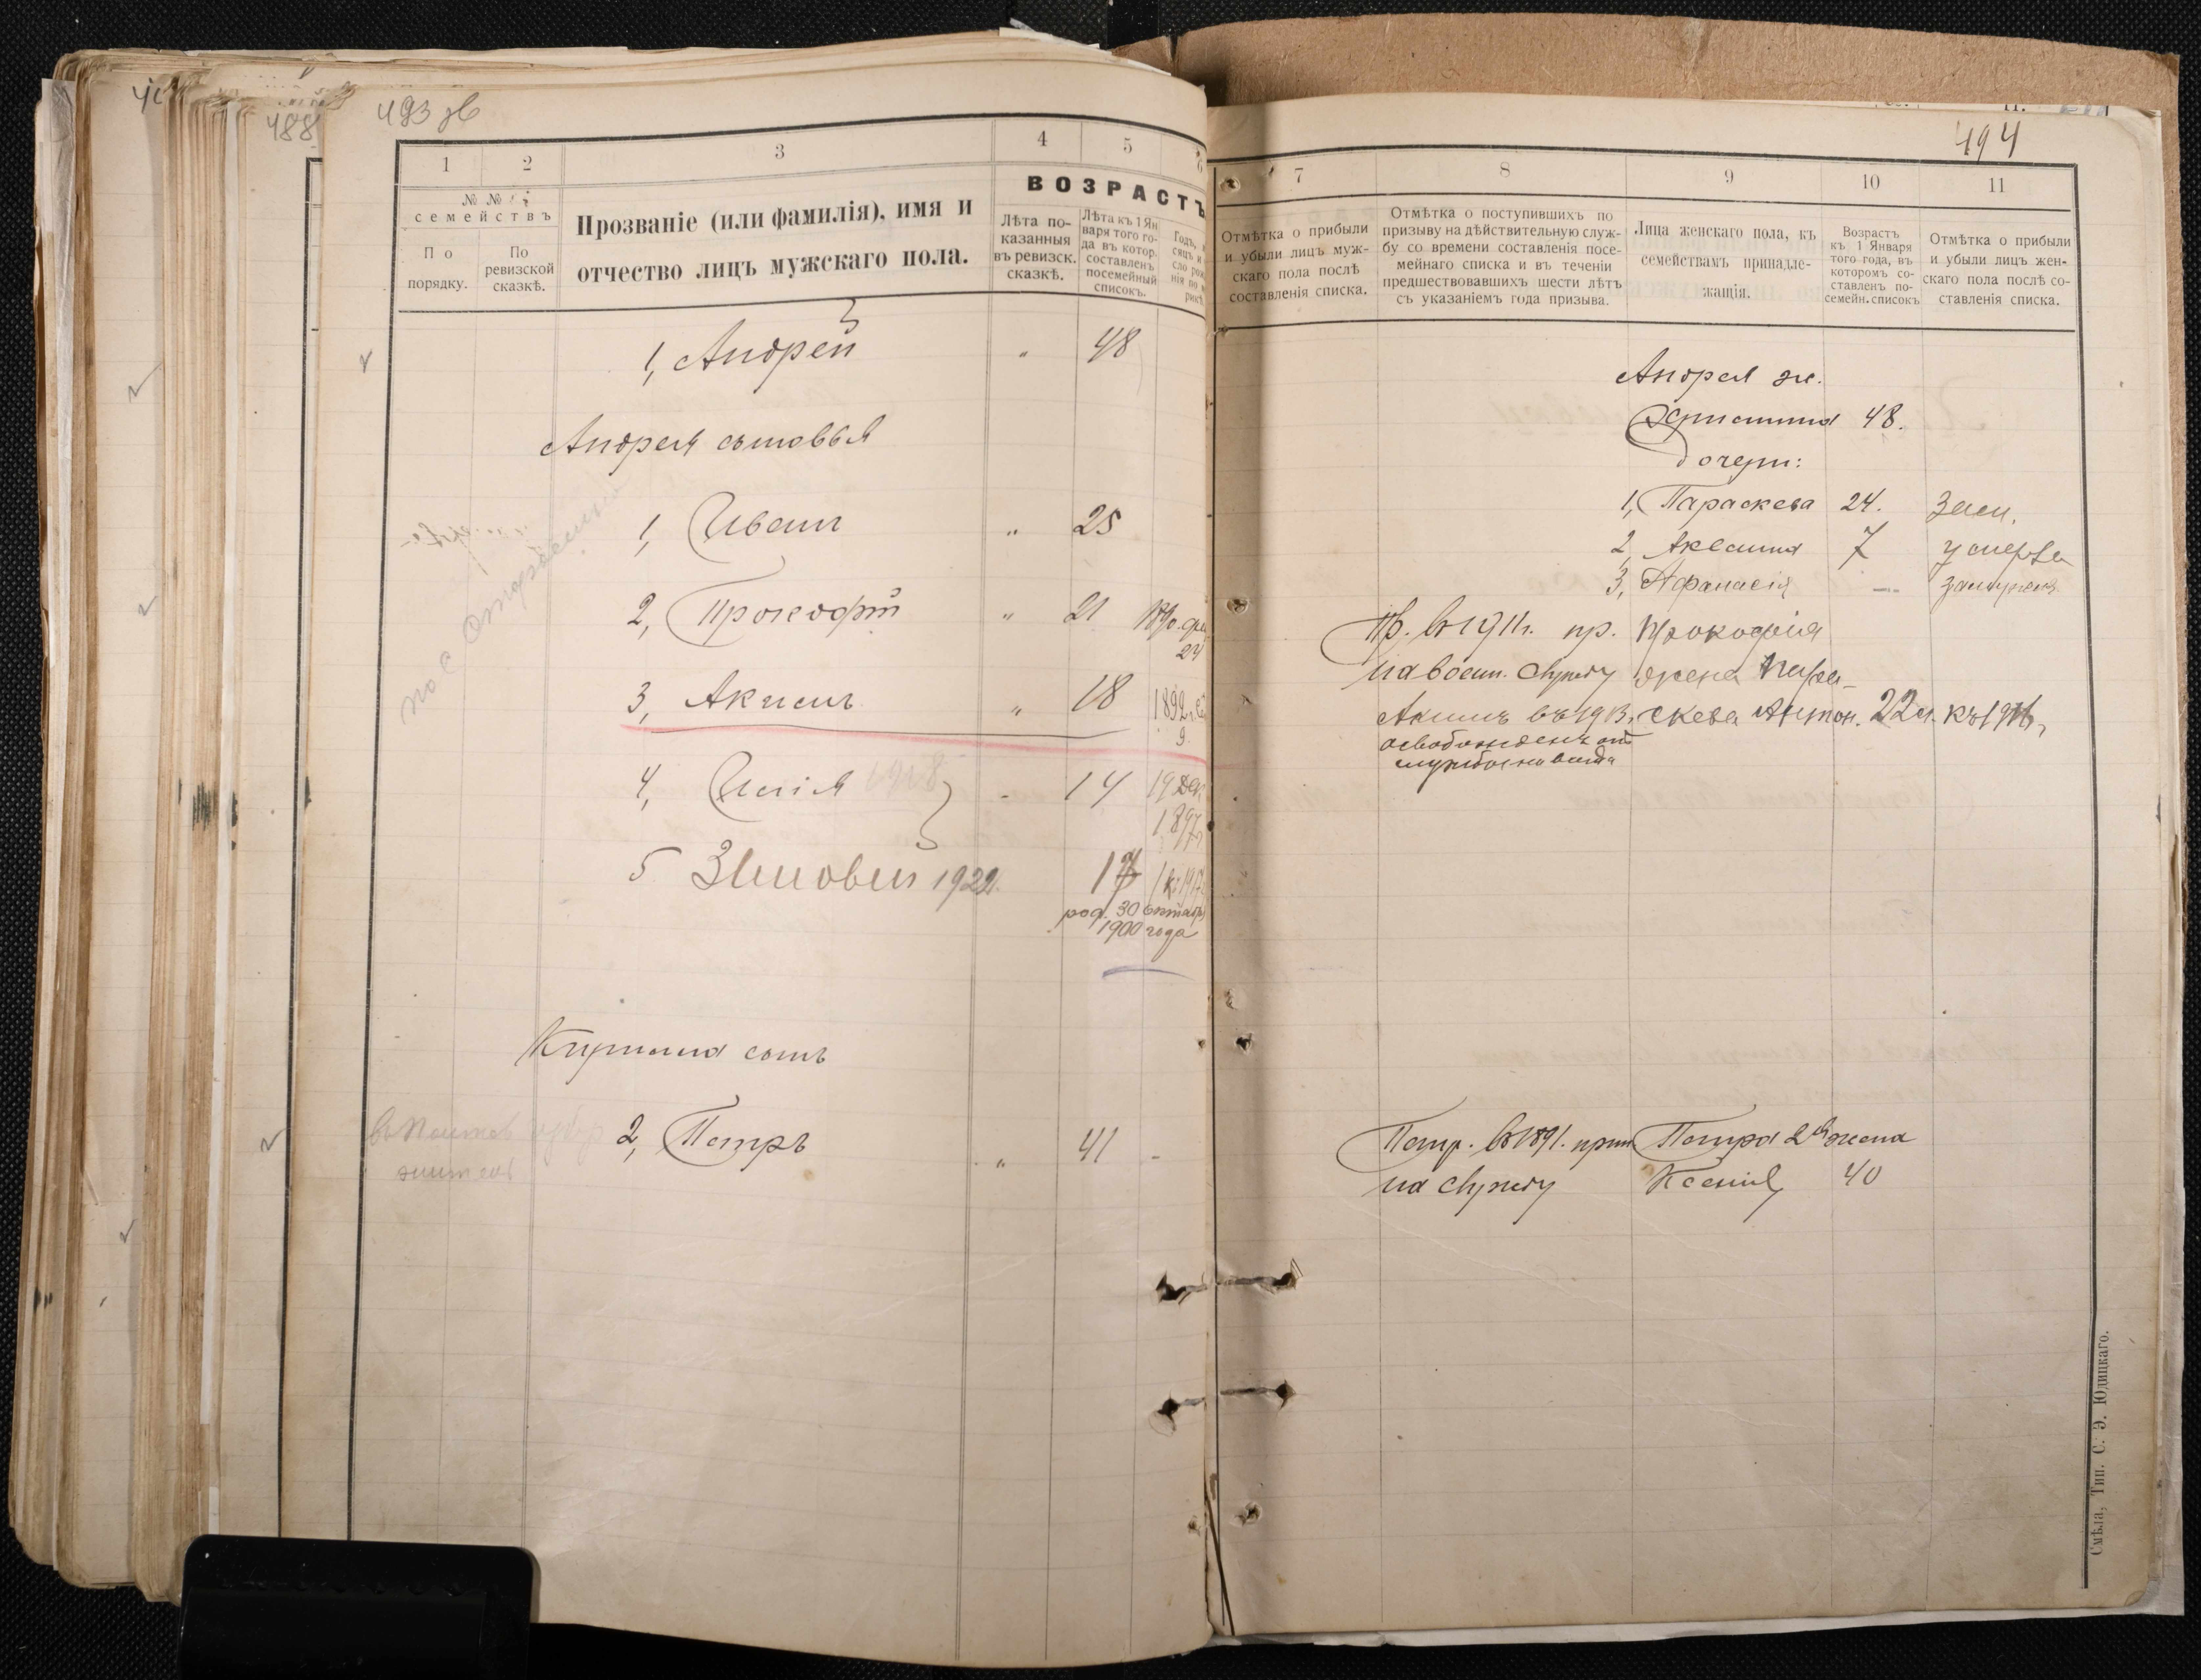 493 зв
488
1
2
3
4
5
6
№ №
семействъ
По порядку.
По ревизской сказкѣ.
Прозваніе (или фамилія), имя и
отчество лицъ мужскаго пола.
ВОЗРАСТЪ
Лѣта по-
казанныя
въ ревизск.
сказкѣ.
Лѣта къ 1 Ян
варя того го-
да въ котор.
составленъ
посемейный
списокъ.
1, Андрей " 48
Андрея сыновья
1, Иванъ " 25
2, Прокофій " 21
3, Акимъ " 18 1892
9
4, Илія 1918 - 14 19 Дек
1897
5 Зиновій 1922 17
род. 30 октябр
1900 года
Кирилла сынъ
2, Петръ " 41 -
494
7
8
9
10
11
Отмѣтка о прибыли
и убыли лицъ муж-
скаго пола послѣ
составленія списка.
Отмѣтка о поступившихъ по
призыву на дѣйствительную служ-
бу со времени составленія посе-
мейнаго списка и въ теченіи
предшествовавшихъ шести лѣтъ
съ указаніемъ года призыва.
Лица женскаго пола, къ
семействамъ принадле-
жащія.
Возрастъ
къ 1 Января
того года, въ
которомъ со-
ставленъ по-
семейн. списокъ
Отмѣтка о прибыли
и убыли лицъ жен-
скаго пола послѣ со-
ставленія списка.
Андрея ж.
Христина 48.
дочери:
1, Параскева 24. Зам.
2, Аксинія 7 умерла
3, Афанасія — замужемъ
Пр. въ 1911г. пр. Прокофія
на воен. службу жена Пара-
Акимъ въ 1913г. скева Антон. 22 л.
освобожденъ отъ
службы навсегда
Петр. въ 1891. прин Петра 2я жена
на службу Ксенія 40
Смѣла, Тип. С. Э. Юдицкаго.